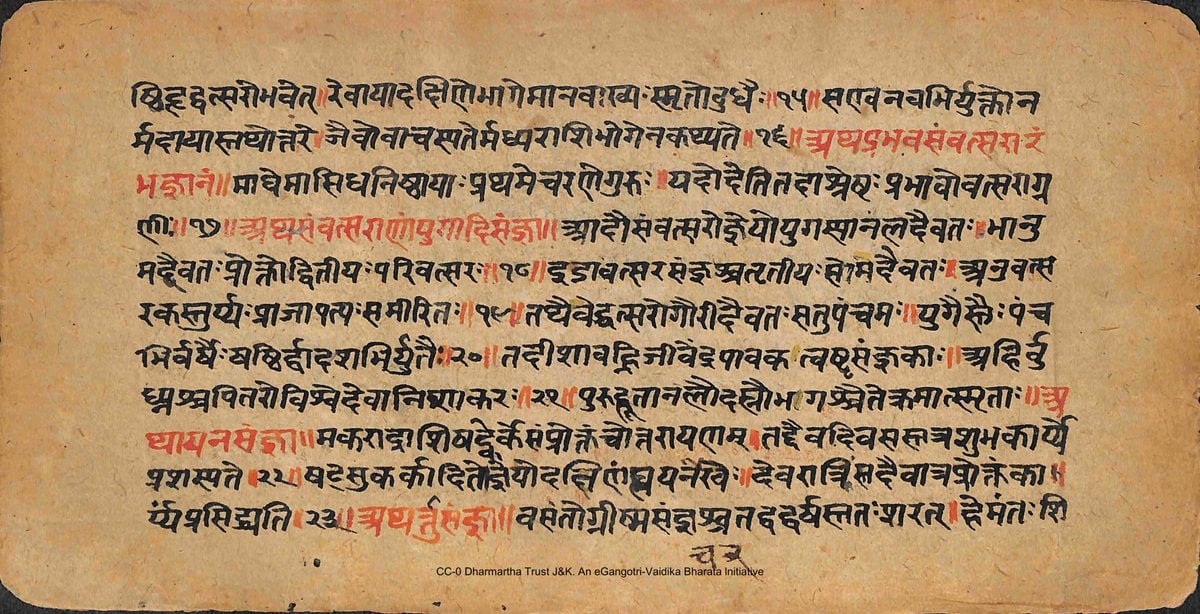 ष्ठिहृद्वत्सरोभवेत्॥रेवायादक्षिणेभागेमानवाख्यःस्मृतोबुधैः॥१५॥सएवनवभिर्युक्तोन
र्मदायास्तथोत्तरे।जैवोवाचस्पतेर्मध्यराशिभोगेनकथ्यते॥१६॥अथप्रभवसंवत्सरारं
भज्ञानं॥माघेमासिधनिष्ठायाःप्रथमेचरणेगुरुः॥यदोदैतितदाज्ञेयःप्रभावोवत्सराग्र
णीः॥१७॥अथसंवत्सराणांयुगादिसंज्ञा॥आदौसंवत्सरोज्ञेयोयुगस्यानलदैवतः॥भानु
मद्दैवतःप्रोक्तोद्वितीयःपरिवत्सरः॥१८॥इडावत्सरसंज्ञश्चतृतीयःसोमदैवतः॥अनुवत्स
रकस्तुर्य्यःप्राजापत्यःसमीरितः॥१९॥तथैवेद्वत्सरोगौरीदैवतःसतुपंचमः॥युगैस्तैःपंच
भिर्वर्षैःषष्ठिर्द्वादशभिर्युतैः॥२०॥तदीशावह्निजीवेंद्रपावकत्वष्टृसंज्ञकाः॥अहिर्बु
ध्न्यश्चपितरोविश्वेदेवानिशाकरः॥२१॥पुरुहूतानलौदस्त्रौभागश्चैतेक्रमात्स्मृताः॥अ
थायनसंज्ञा॥मकराद्राशिषट्केर्केसंप्रोक्तंचोत्तरायणम्।तद्दैवदिवसस्तत्रशुभकार्य्यं
प्रशस्यते॥२२॥षट्सुकर्कादितोज्ञेयोदक्षिणंह्ययनेरविः॥दैवरात्रिस्तदैवात्रप्रोक्तंका॥
र्य्यंप्रसिद्ध्यति॥२३॥अथर्त्तुसंज्ञा॥वसंतोग्रीष्मसंज्ञश्चतद्वद्वर्षस्ततःशरत्।हेमंतःशि
CC-0 Dharmartha Trust J&K. An eGangotri-Vaidika Bharata Initiative